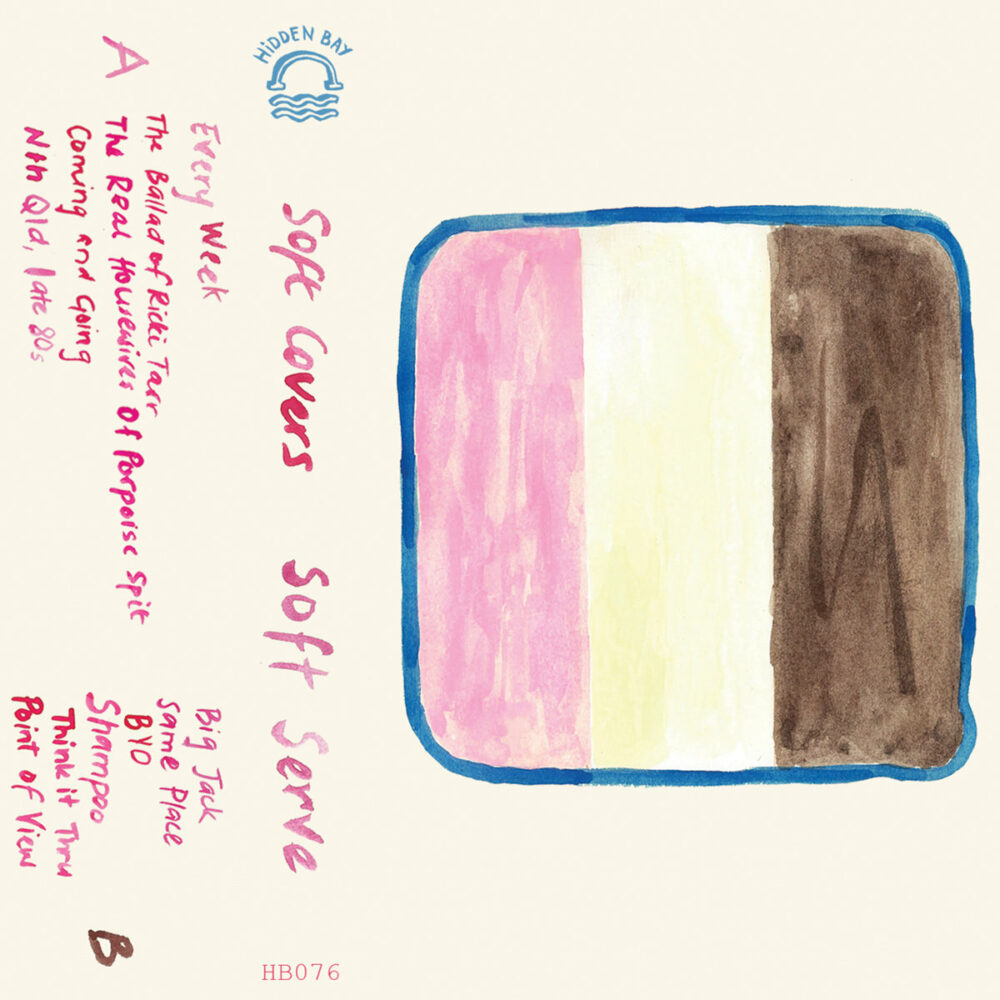 HiDDEN BAY
Soft Covers Soft Serve
HB076
A
Every Week
The Ballad of Ricki Tarr
The Real Housewives of Porpoise Spit
Coming and Going
Nth Qld, late 80s
Big Jack
Same Place
BYO
Shampoo
Think it Thru
Point of View
B